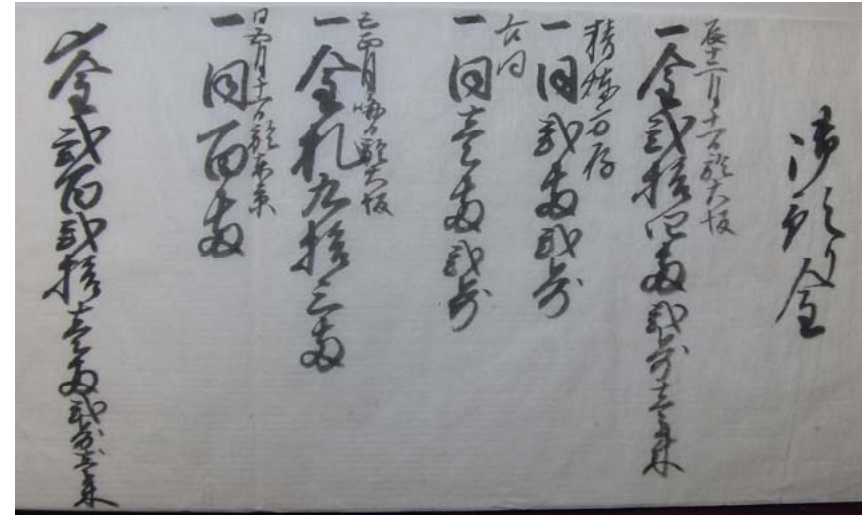 御預り金
辰十二月十一日於大坂
一金弐拾四両弐歩壱朱
一同弐両弐歩
右同
一同壱両弐歩
巳正月晦日於大坂
一金札九拾三両
月十一日於東京
一同百両
〆金弐百弐拾壱両弐歩壱朱